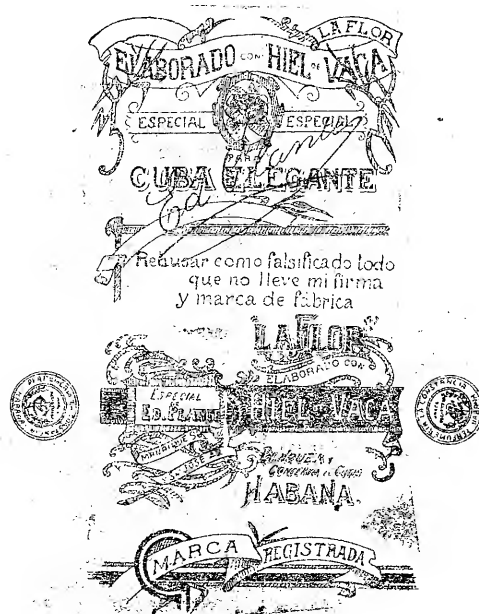 LA FLOR
ELABORADO CON HIEL DE VACA
ESPECIAL ESPECIAL
PARA
CUBA ELEGANTE
Ed. Planté
Rehusar como falsificado todo
que no lleve mi firma
y marca de fábrica
"LA FLOR"
ELABORADO CON
HIEL DE VACA
ESPECIAL
ED. PLANTÉ
MANRIQUE
HABANA.
MARCA REGISTRADA